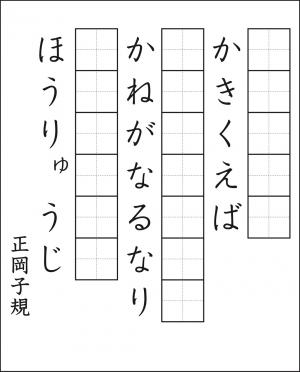 かきくえば
かねがなるなり
ほうりゅうじ
正岡子規